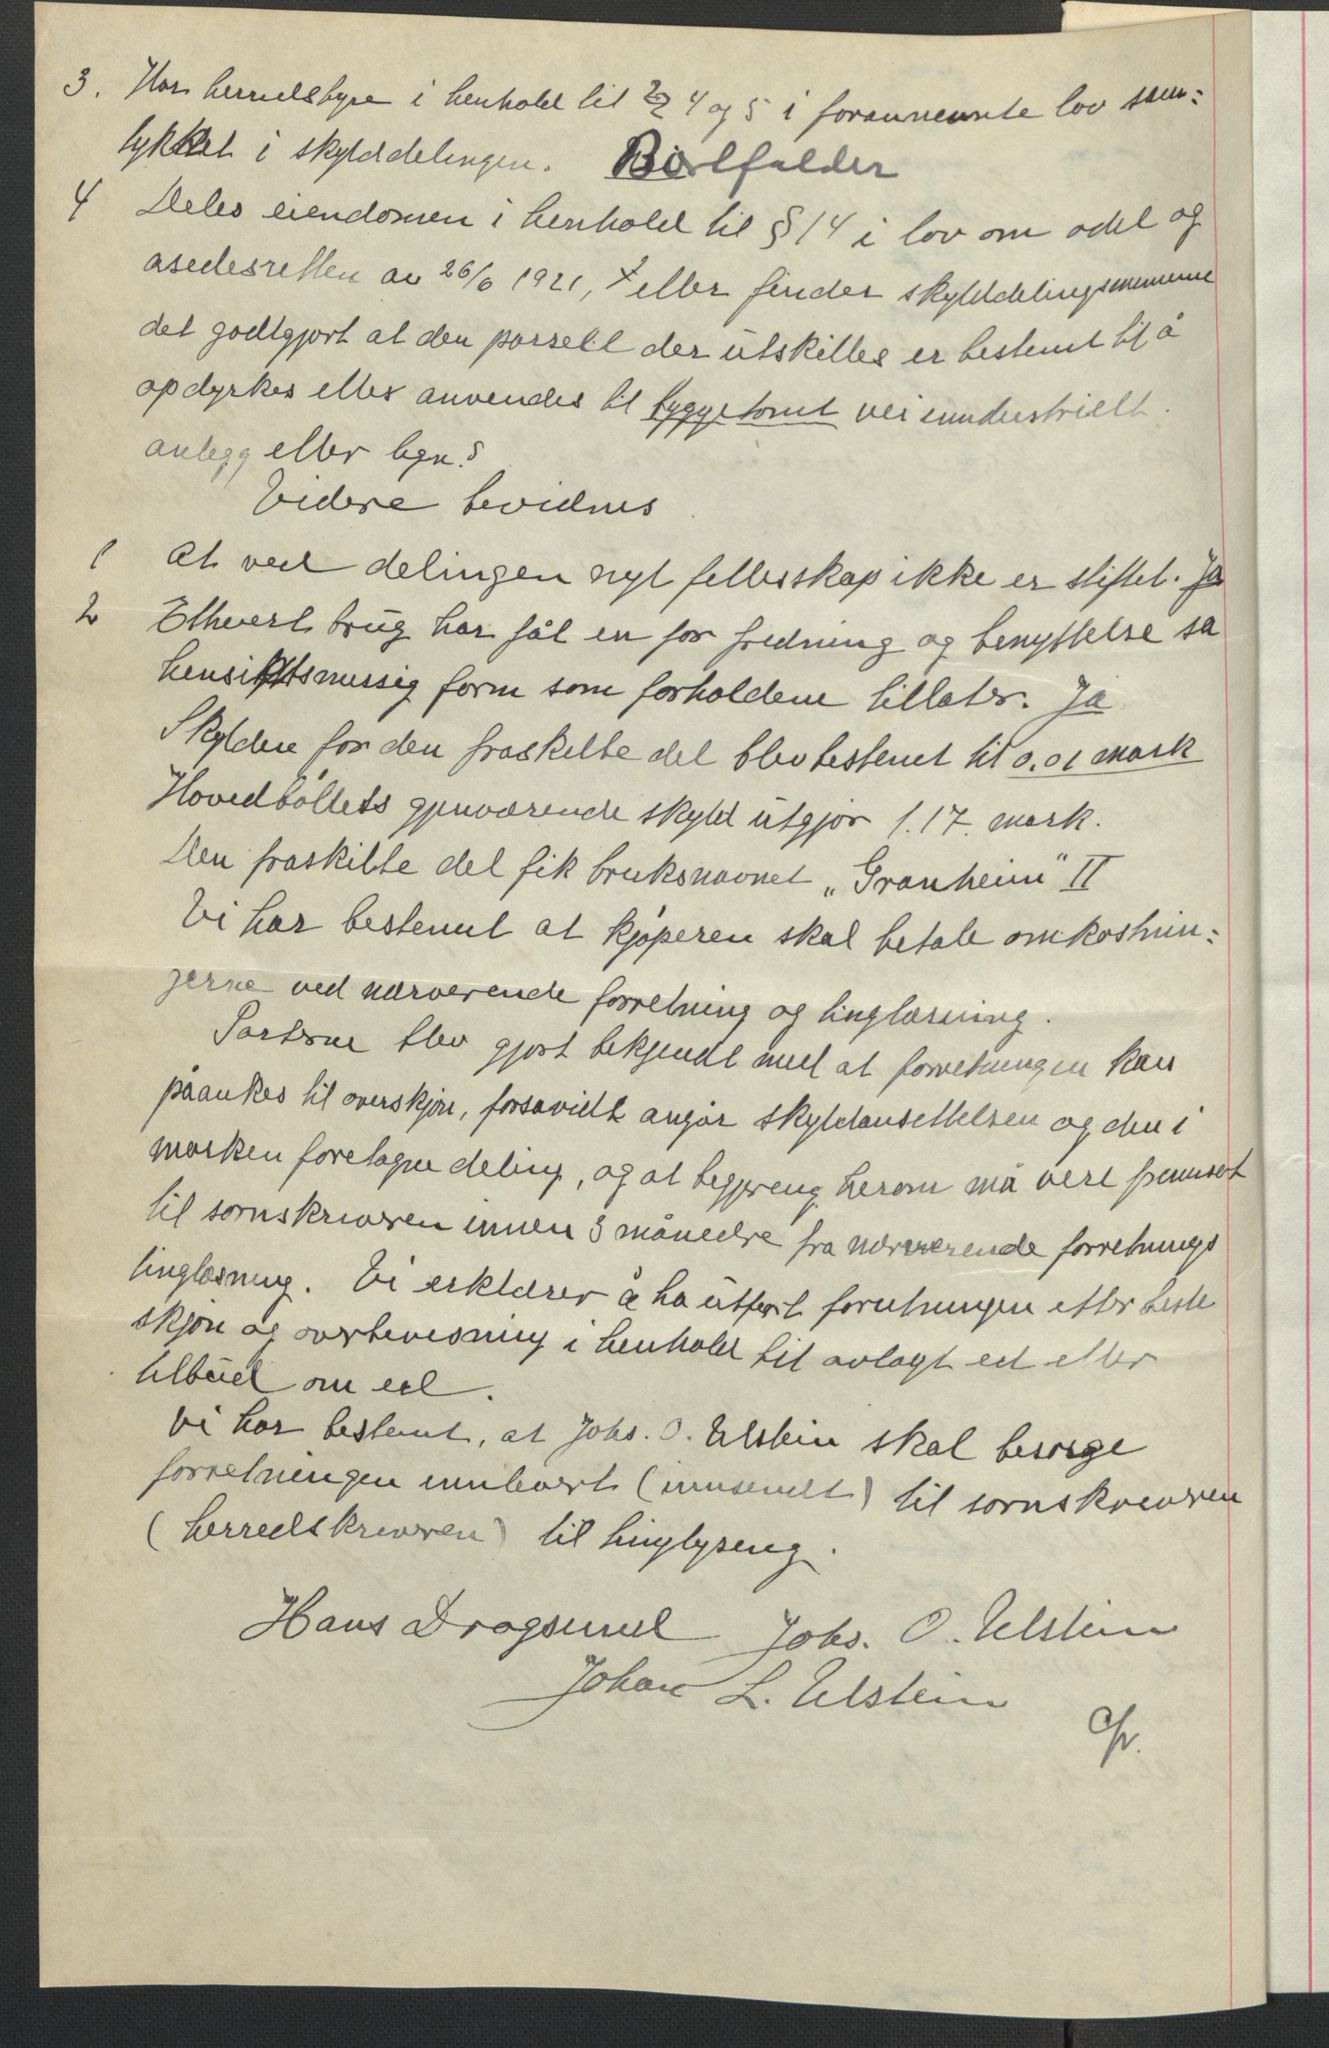 3. Har herredstyre i henhold til §§ 4 og 5 i forannevnte lov sam=
tykket i skylddelingen. Bortfalder
4 Deles eiendomen i henhold til § 14 i lov om odel og
åsedesretten av 26/6 1921, eller finder skylddelingsmennene
det godtgjort at den parsell der utskilles er bestemt til å
opdyrkes eller anvendes til byggetomt vei inndustrielt
anlegg eller lign?
Videre bevidnes
1 at ved delingen nyt fellesskap ikke er stiftet. Ja
2 Ethvert brug har fåt en for fredning og benyttelse så
hensiktsmessig form som forholdene tillater. Ja
Skylden for den fraskilte del blev bestemt til 0.01 mark
Hovedbøllets gjenværende skyld utgjør 1.17 mark.
Den fraskilte del fik bruksnavnet „Granheim" II
Vi har bestemt at kjøperen skal betale omkostnin=
gerne ved nærverende forretning og tinglæsning.
Parterne blev gjort bekjendt med at forretningen kan
påankes til overskjøn, forsåvidt angår skyldansettelsen og den i
marken foretagne deling, og at begjæring herom må vere fremsat
til sornskriveren innen 3 måneder fra nærverende forretnings
tinglæsning. Vi erklærer å ha utført forretningen efter beste
skjøn og overbevisning i henhold til avlagt ed eller
tilbud om ed.
Vi har bestemt, at Johs. O. Ulstein skal besørge
forretningen innlevert (innsendt) til sornskriveren
(herredskriveren) til tinglysing.
Hans Dragsund Johs. O. Ulstein
Johan L. Ulstein